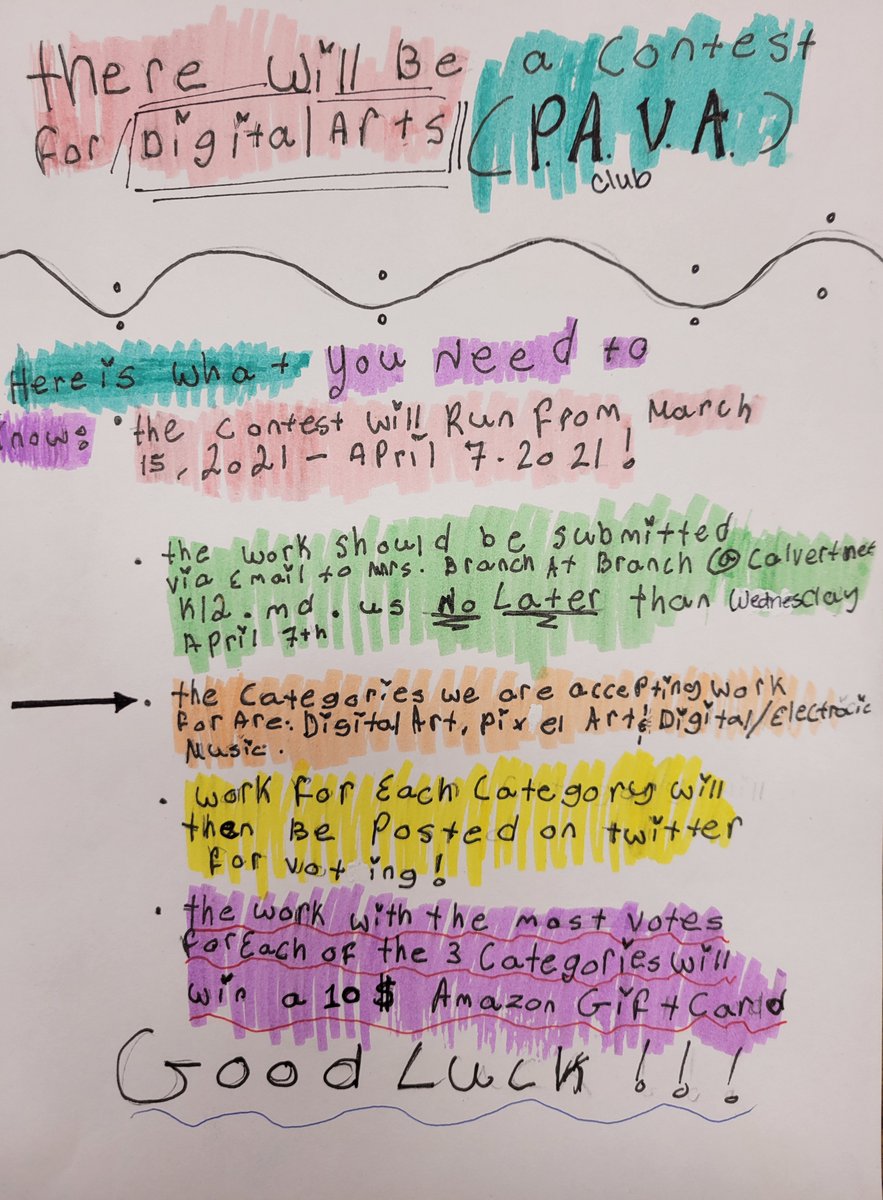 there will Be a contest
for Digital Arts (P.A.V.A.)
club
Here is what you Need to
know:
• the contest will Run from March
15, 2021 - April 7.2021!
• the work should be submitted
via Email to Mrs. Branch At Branch @ Calvertnet
K12.md.us No Later than Wednesday
April 7th
• the Categories we are accepting work
for Are: Digital Art, pixel Art & Digital/Electronic
Music.
• work for Each Category will
then Be Posted on twitter
for voting!
• the work with the most votes
for Each of the 3 Categories will
win a 10$ Amazon Gift Card
Good Luck!!!